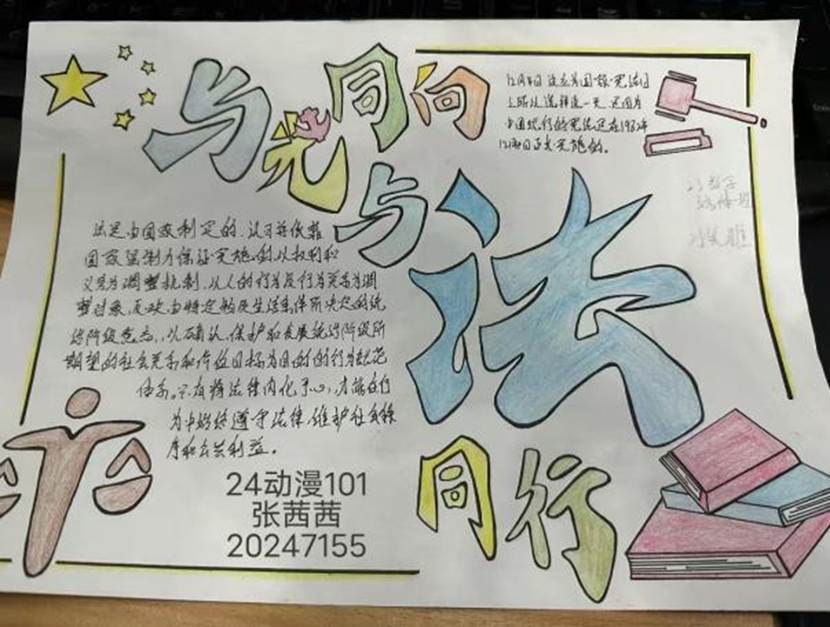 与光同向
12月4日设立为国"家"宪法日
之所以选择这一天,是因为
中国现行的宪法是在1982年
12月4日正式实施的。
与法
法是由国家制定的、认可并依靠
国家强制力保证实施的,以权利和
义务为调整机制,以人的行为及行为关系为调
整对象,反映由特定物质生活条件所决定的统
治阶级意志,以确认、保护和发展统治阶级所
期望的社会关系和价值目标为目的的行为规范
体系。只有将法律内化于心,才能在行
为中始终遵守法律,维护社会秩
序和公共利益。
同行
24动漫101
张茜茜
20247155